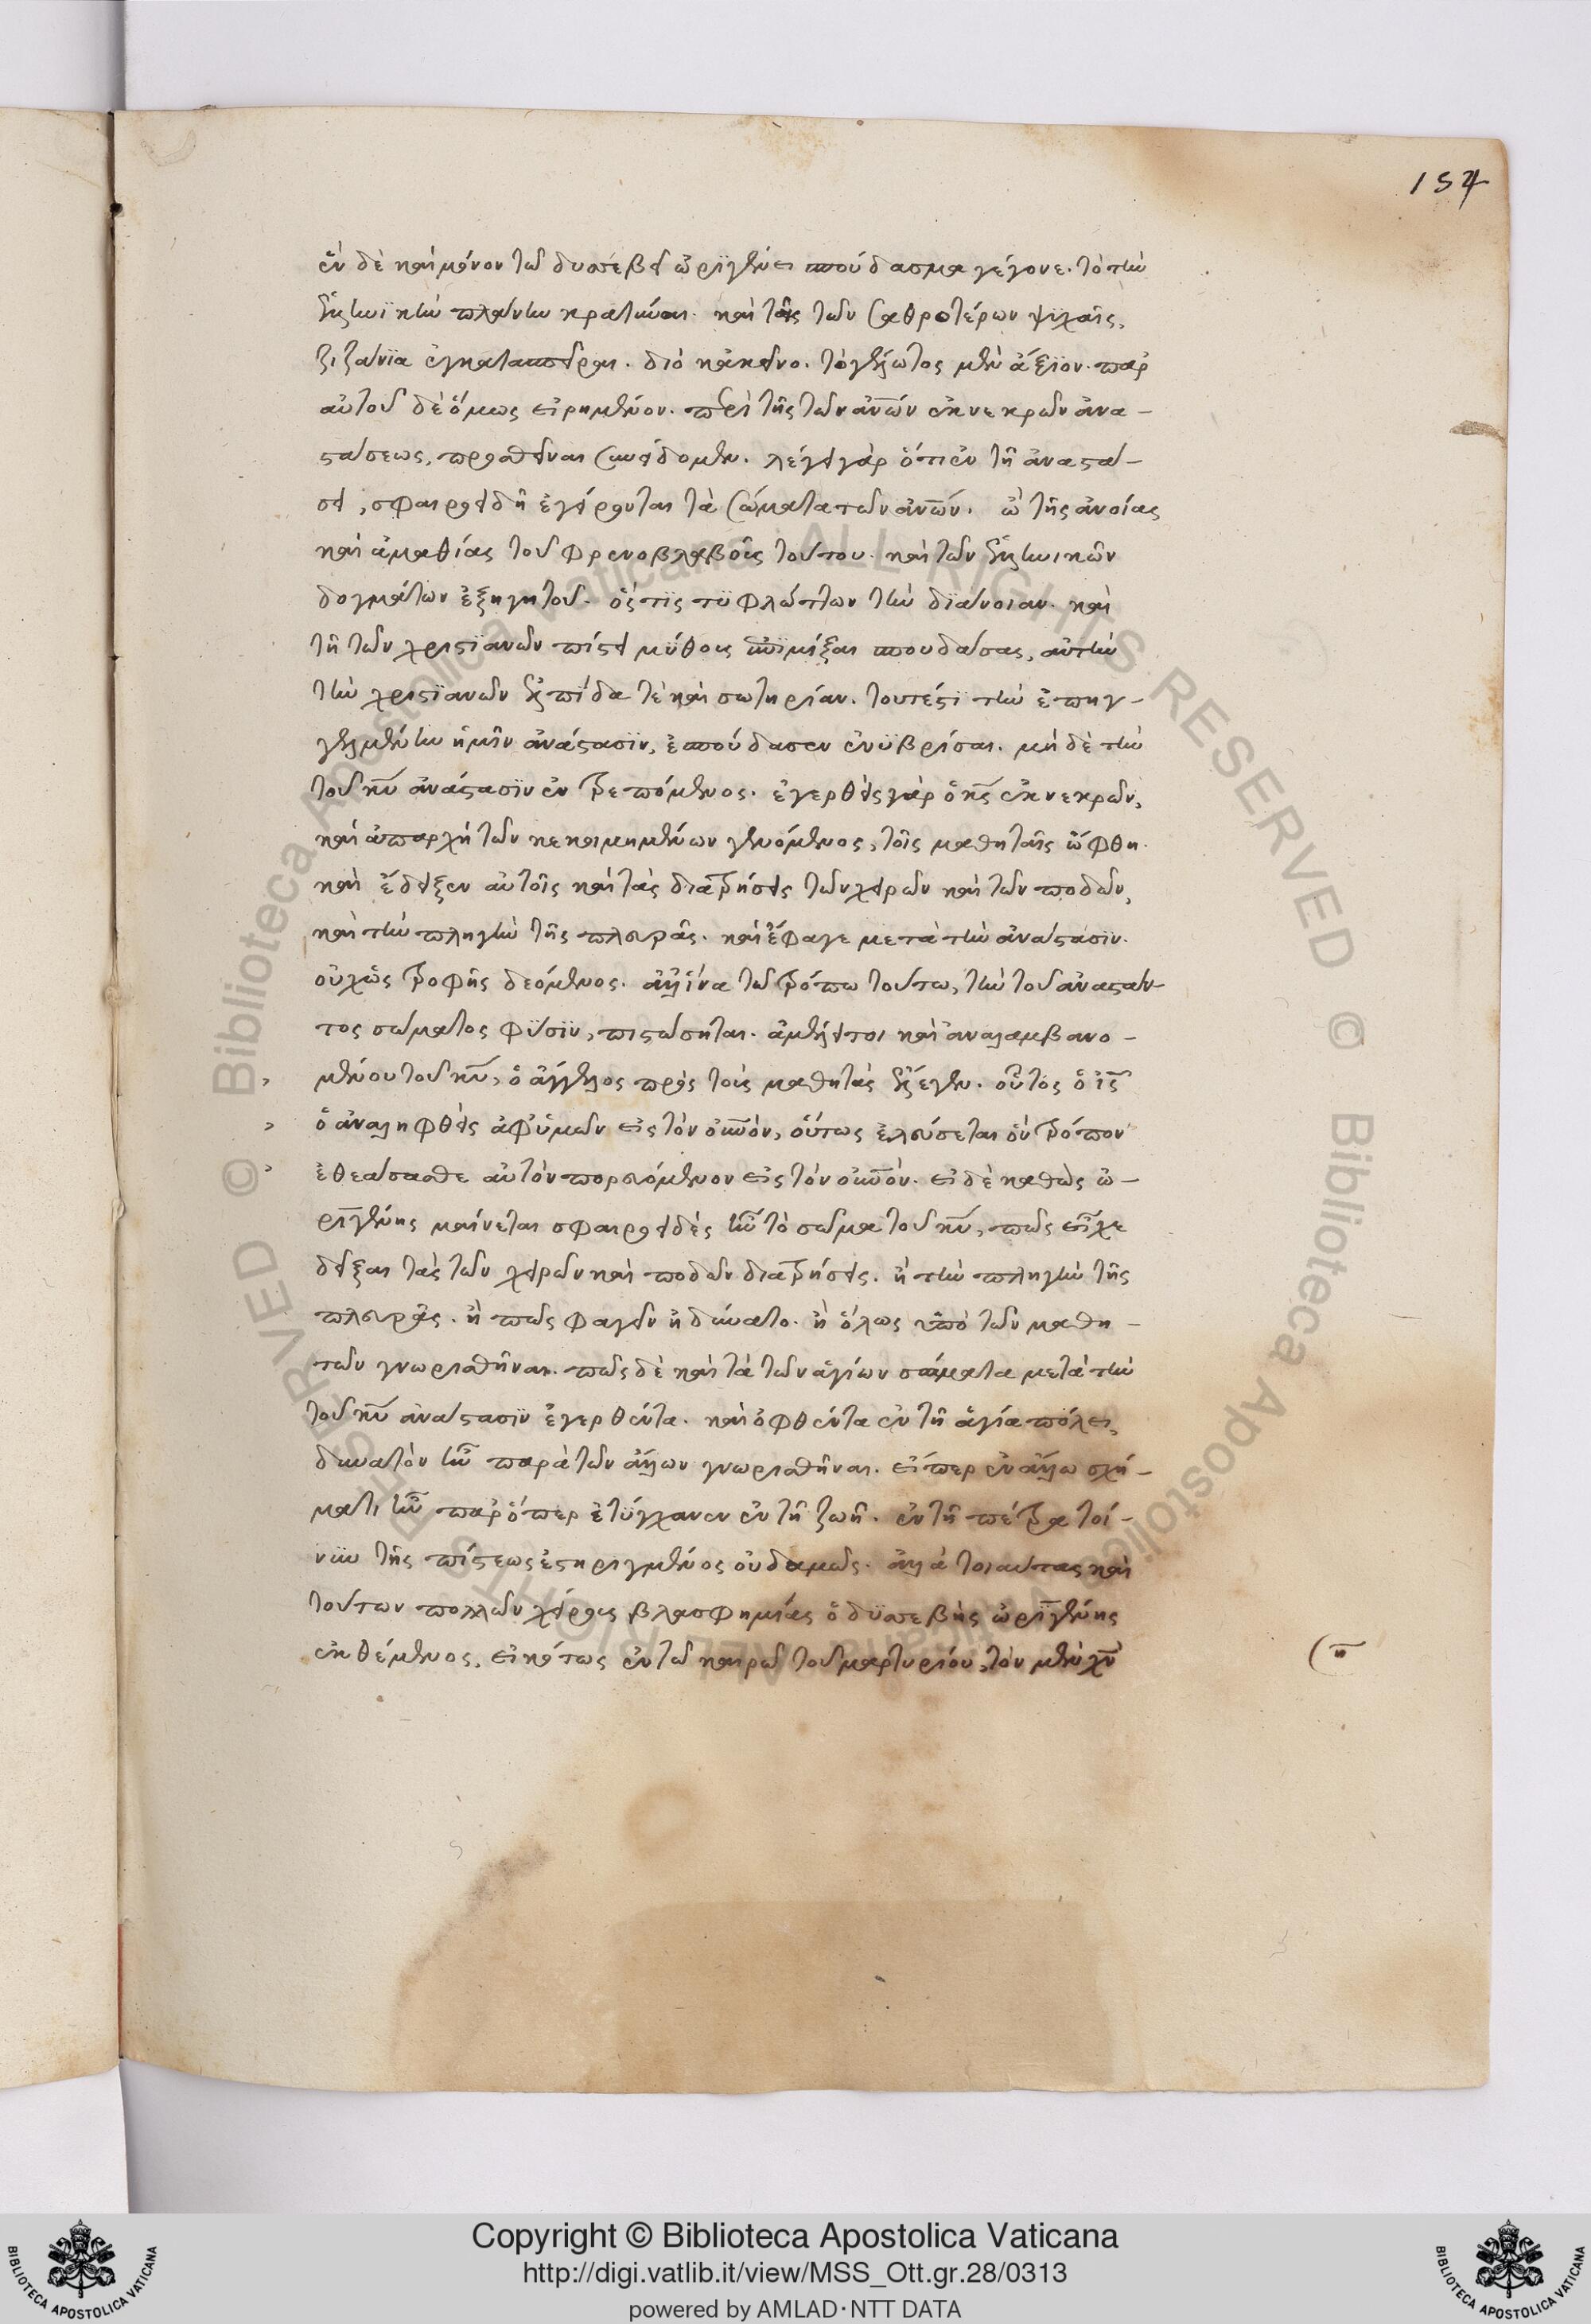 157
ἓν δὲ καὶ μόνον τῶ δυσεβεῖ ὠριγένει σπούδασμα γέγονε. τὸ τὴν
ἑλληνικὴν πλάνην κρατῦναι. καὶ ταῖς τῶν σαθροτέρων ψυχαῖς,
ζιζάνϊα ἐγκατασπεῖραι. διὸ κἀκεῖνο. τὸ γέλωτος μὲν ἄξϊον. παρ
αὐτοῦ δὲ ὅμως εἰρημένον. περὶ τῆς τῶν ἀνῶν ἐκ νεκρῶν ἀνα-
στάσεως, προσθεῖναι συνείδομεν. λέγει γὰρ ὅτι ἐν τῆ ἀναστά-
σει, σφαιροειδῆ ἐγείρονται τὰ σώματα τῶν ἀνῶν. ὢ τῆς ἀνοίας
καὶ ἀμαθίας τοῦ φρενοβλαβοῦς τούτου. καὶ τῶν ἑλληνικῶν
δογμάτων ἐξηγητοῦ. ὅστις τϋφλώττων τὴν δϊάνοιαν. καὶ
τῆ τῶν χριστϊανῶν πίστει μύθους ἐπϊμίξαι σπουδάσας, αὐτὴν
τὴν χριστϊανῶν ἐλπίδα τὲ καὶ σωτηρίαν. τουτέστι τὴν ἐπηγ-
γελμένην ἡμῖν ἀνάστασϊν, ἐσπούδασεν ἐνϋβρίσαι. μὴ δὲ τὴν
τοῦ κυ ἀνάστασϊν ἐντρεπόμενος. ἐγερθεὶς γὰρ ὁ κς ἐκ νεκρῶν,
καὶ ἀπαρχὴ τῶν κεκοιμημένων γενόμενος, τοῖς μαθηταῖς ὤφθη.
καὶ ἔδειξεν αὐτοῖς καὶ τὰς διατρήσεις τῶν χειρῶν καὶ τῶν ποδῶν,
καὶ τὴν πληγὴν τῆς πλευρᾶς. καὶ ἔφαγε μετὰ τὴν ἀνάστασϊν.
οὐχ ὡς τροφῆς δεόμενος. ἀλλ ἵνα τῶ τρόπω τούτω, τὴν τοῦ ἀναστάν-
τος σώματος φύσϊν, πιστώσηται. ἀμέλει τοι καὶ ἀναλαμβανο-
μένου τοῦ κυ, ὁ ἄγγελος πρὸς τοὺς μαθητὰς ἔλεγεν. οὗτος ὁ ις
ὁ ἀναληφθεὶς ἀφ ὑμῶν εἰς τὸν οὐνόν, οὕτως ἐλεύσεται ὃν τρόπον
ἐθεάσασθε αὐτὸν πορευόμενον εἰς τὸν οὐνόν. εἰ δὲ καθὼς ὠ-
ριγένης μαίνεται σφαιροειδὲς ἦν τὸ σῶμα τοῦ κυ, πῶς εἶχε
δεῖξαι τὰς τῶν χειρῶν καὶ ποδῶν διατρήσεις. ἢ τὴν πληγὴν τῆς
πλευρᾶς. ἢ πῶς φαγεῖν ἠδύνατο. ἢ ὅλως ὑπὸ τῶν μαθη-
τῶν γνωρισθῆναι. πῶς δὲ καὶ τὰ τῶν ἁγίων σώματα μετὰ τὴν
τοῦ κυ ἀνάστασϊν ἐγερθέντα. καὶ ὀφθέντα ἐν τῆ ἁγία πόλει,
δυνατὸν ἦν παρὰ τῶν ἄλλων γνωρισθῆναι. εἴπερ ἐν ἄλλω σχή-
ματι ἦν παρ ὅπερ ἐτύγχανεν ἐν τῆ ζωῆ. ἐν τῆ πέτρα τοί-
νυν τῆς πίστεως ἐστηριγμένος οὐδαμῶς. ἀλλὰ τοιαύτας καὶ
τούτων πολλῶν χείρους βλασφημίας ὁ δϋσεβὴς ὠριγένης
ἐκθέμενος, εἰκότως ἐν τῶ καιρῶ τοῦ μαρτυρίου, τὸν μὲν χν
Copyright © Biblioteca Apostolica Vaticana
http://digi.vatlib.it/view/MSS_Ott.gr.28/0313
powered by AMLAD · NTT DATA